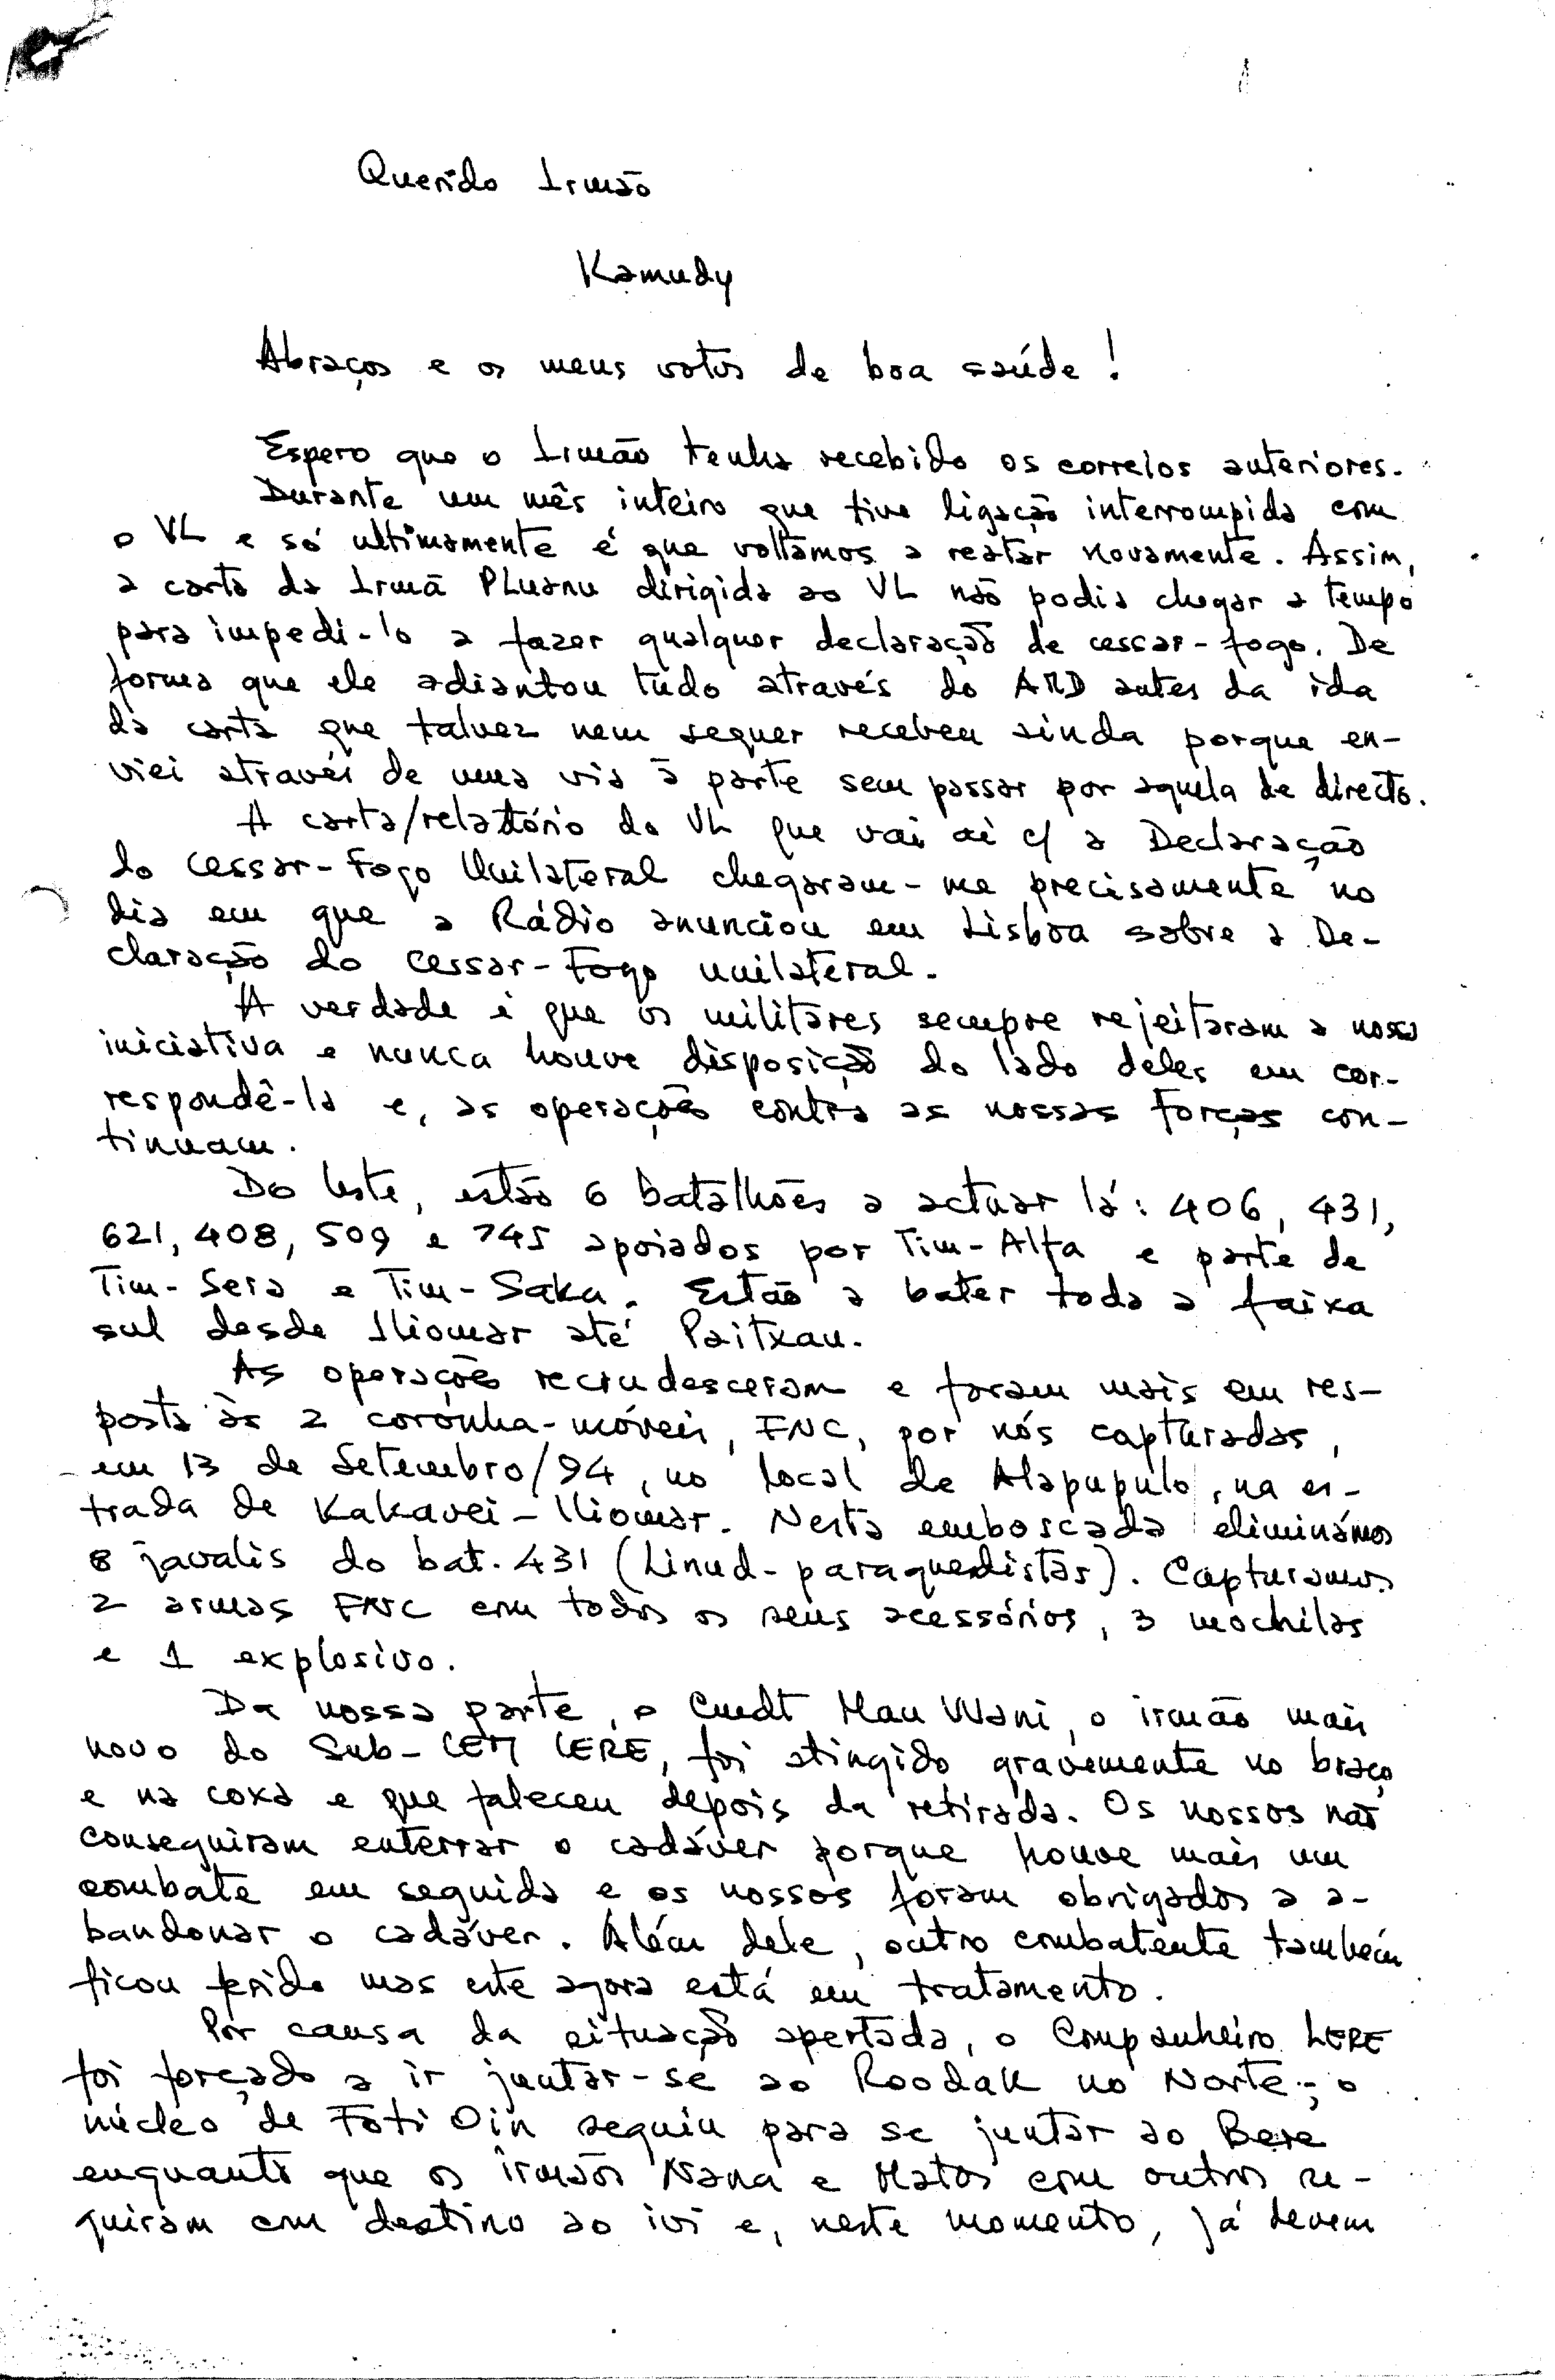 Querido Irmão
Kamudy
Abraços e os meus votos de boa saúde!
Espero que o Irmão tenha recebido os correios anteriores.
Durante um mês inteiro que tive ligação interrompida com
o VL e só ultimamente é que voltámos a reatar novamente. Assim,
a carta da Irmã PLuanu dirigida ao VL não podia chegar a tempo
para impedi-lo a fazer qualquer declaração de cessar-fogo. De
forma que ele adiantou tudo através do ARD antes da ida
da carta que talvez nem sequer recebeu ainda porque en-
viei através de uma via à parte sem passar por aquela de directo.
A carta/relatório do VL que vai aí c/ a Declaração
do Cessar-Fogo Unilateral chegaram-me precisamente no
dia em que a Rádio anunciou em Lisboa sobre a De-
claração do Cessar-Fogo unilateral.
A verdade é que os militares sempre rejeitaram a nossa
iniciativa e nunca houve disposição do lado deles em cor-
respondê-la e, as operações contra as nossas Forças con-
tinuam.
Do leste, estão 6 batalhões a actuar lá: 406, 431,
621, 408, 509 e 745 apoiados por Tim-Alfa e parte de
Tim-Sera e Tim-Saka. Estão a bater toda a faixa
sul desde Iliomar até Paitxau.
As operações recrudesceram e foram mais em res-
posta às 2 coronha-móveis, FNC, por nós capturadas,
em 13 de Setembro/94, no local de Alapupulo, na es-
trada de Kakavei-Iliomar. Nesta emboscada eliminámos
8 javalis do bat. 431 (Linud-paraquedistas). Capturamos
2 armas FNC com todos os seus acessórios, 3 mochilas
e 1 explosivo.
Da nossa parte, o Cmdt Mau Wani, o irmão mais
novo do Sub-CEM LERE, foi atingido gravemente no braço
e na coxa e que faleceu depois da retirada. Os nossos não
conseguiram enterrar o cadáver porque houve mais um
combate em seguida e os nossos foram obrigados a a-
bandonar o cadáver. Além dele, outro combatente também
ficou ferido mas este agora está em tratamento.
Por causa da situação apertada, o Companheiro LERE
foi forçado a ir juntar-se ao Roodak no Norte; o
núcleo de Foti Oin seguiu para se juntar ao Bere
enquanto que os irmãos Nana e Matos com outros se-
guiram com destino ao ivi e, neste momento, já devem